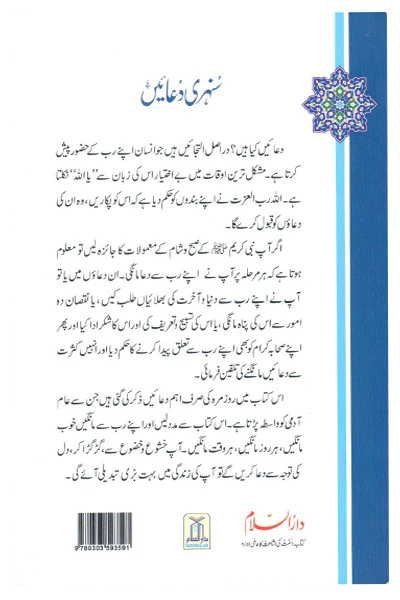 سنہری دعائیں
دعائیں کیا ہیں؟ دراصل التجائیں ہیں جو انسان اپنے رب کے حضور پیش
کرتا ہے۔ مشکل ترین اوقات میں بے اختیار اس کی زبان سے ”یا اللہ“ نکلتا
ہے۔ اللہ رب العزت نے اپنے بندوں کو حکم دیا ہے کہ اس کو پکاریں، وہ ان کی
دعاؤں کو قبول کرے گا۔
اگر آپ نبی کریم ﷺ کے صبح و شام کے معمولات کا جائزہ لیں تو معلوم
ہوتا ہے کہ ہر مرحلہ پر آپ نے اپنے رب سے دعا مانگی۔ ان دعاؤں میں یا تو
آپ نے اپنے رب سے دنیا و آخرت کی بھلائیاں طلب کیں، یا نقصان دہ
امور سے اس کی پناہ مانگی، یا اس کی تسبیح و تعریف کی اور اس کا شکر ادا کیا اور پھر
اپنے صحابہ کرام کو بھی اپنے رب سے تعلق پیدا کرنے کا حکم دیا اور انہیں کثرت
سے دعائیں مانگنے کی تلقین فرمائی۔
اس کتاب میں روزمرہ کی صرف اہم دعائیں ذکر کی گئی ہیں جن سے عام
آدمی کو واسطہ پڑتا ہے۔ اس کتاب سے مدد لیں اور اپنے رب سے مانگیں خوب
مانگیں، ہر روز مانگیں، ہر وقت مانگیں۔ آپ خشوع و خضوع سے، گڑگڑا کر، دل
کی توجہ سے دعا کریں گے تو آپ کی زندگی میں بہت بڑی تبدیلی آئے گی۔
دارالسلام
کتاب و سنت کی اشاعت کا عالمی ادارہ
DARUSSALAM
9 780303 593591